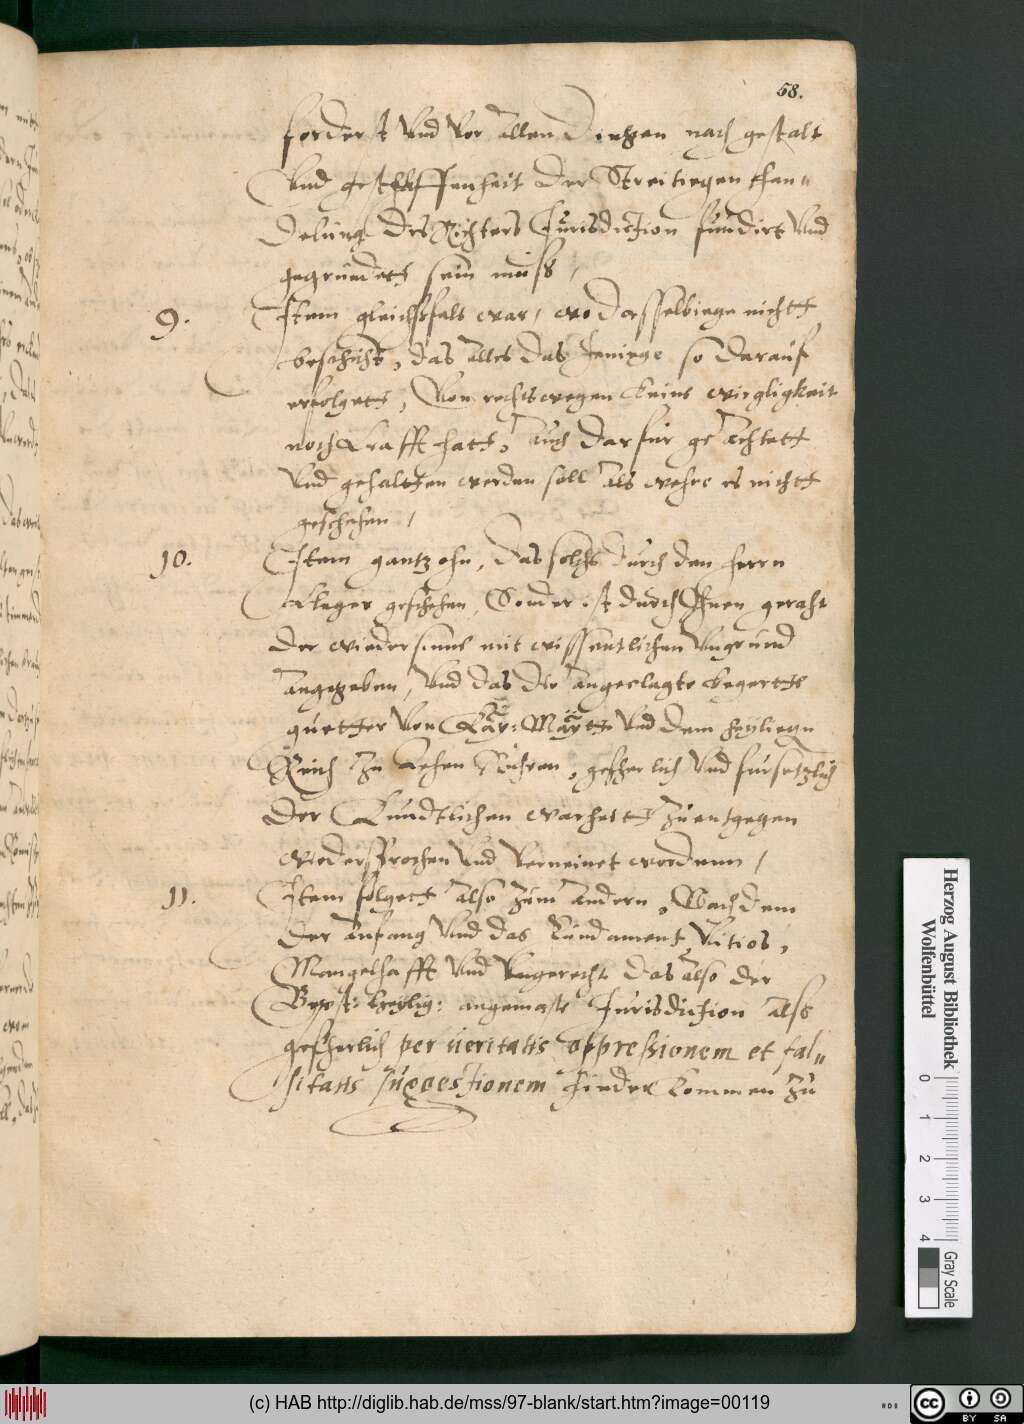 58.
forderst Vnd Vor allen Dingen nach gestalt
Vnd geschaffenheit der Streitiegen than"
delung des Richters Jurisdiction fundirt Vnd
gegrundett sein muss,
9. Item gleichsfals war, wo dasselbiege nichtt
beschicht, das alles das Jeniege so darauf
erfolgett, Von rechtswegen keine wirgligkeit
noch krafft hatt, auch darfur geachtett
Vnd gehaltten werden soll als wehre es nichtt
geschehen,
10. Item gantz ohn, das solchs durch den herrn
kleger geschehen, Sonder ist durch Ihnen geraht
der wiedersinns mit wissentlichen Vngrund
angegeben, Vnd das die angeclagte begertte
guetter Von Kay: Maytt Vnd dem heyliegn
Reich zu Lehen Ruhren, gefherlich Vnd fursetzlich
der kundtlichen warheitt zu entgegen
wiedersprochen Vnd Verneinet wordenn,
11. Item folgett also zum andern, Nachdem
der anfang Vnd das Fundament Vitios,
Mangelhafft Vnd Vngerecht das also der
angemaste Jurisdiction alss
gefherlich per ueritatis oppressionem et fal"
sitatis suggestionem hinder kommen zu
Herzog August Bibliothek
Wolfenbüttel
0 1 2 3 4
Gray Scale
(c) HAB http://diglib.hab.de/mss/97-blank/start.htm?image=00119
cc BY SA